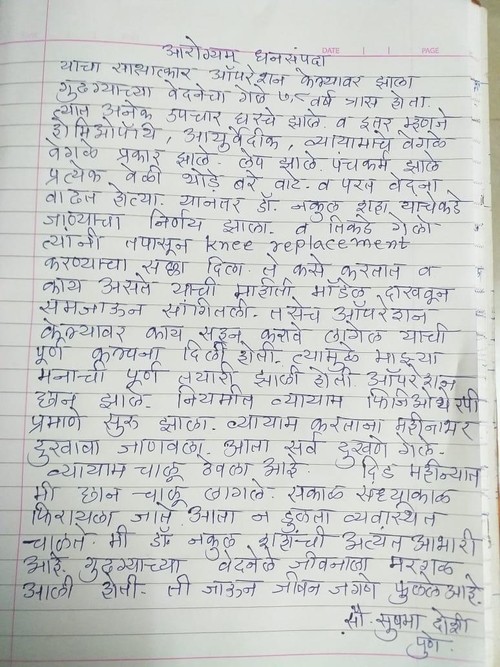 आरोग्यम् धनसंपदा
DATE | | PAGE
याचा साक्षात्कार ऑपरेशन केल्यावर झाला
गुढग्याच्या वेदनेचा गेले ७,८ वर्ष त्रास होता.
त्यात अनेक उपचार घरचे झाले. व इतर म्हणजे
होमिओपॅथि, आयुर्वेदीक, व्यायामाचे वेगळे
वेगळे प्रकार झाले. लेप झाले. पंचकर्म झाले
प्रत्येक वेळी थोडे बरे वाटे. व परत वेदना
वाढत होत्या. यानंतर डॉ. नकुल शहा यांचेकडे
जाण्याचा निर्णय झाला. व तिकडे गेलो
त्यांनी तपासून knee replacement
करण्याचा सल्ला दिला. ते कसे करतात व
काय असते याची माहीती मॉडेल दाखवून
समजाऊन सांगितली. तसेच ऑपरेशन
केल्यावर काय सहन करावे लागेल याची
पूर्ण कल्पना दिली होती. त्यामुळे माझ्या
मनाची पूर्ण तयारी झाली होती. ऑपरेशन
छान झाले. नियमीत व्यायाम फिजिओथेरपी
प्रमाणे सुरु झाला. व्यायाम करताना महीनाभर
दुखावा जाणवला. आता सर्व दुखणे गेले.
व्यायाम चालू ठेवला आहे. दिड महीन्यात
मी छान चालू लागले. सकाळ संध्याकाळ
फिरायला जाते. आता न डुलता व्यवस्थित
चालते. मी डॉ नकुल शहांची अत्यंत आभारी
आहे. गुढग्याच्या वेदनेले जीवनाला मरगळ
आली होती. ती जाऊन जीवन जगणे फुलले आहे.
सौ. सुषमा दोशी
पुणे.